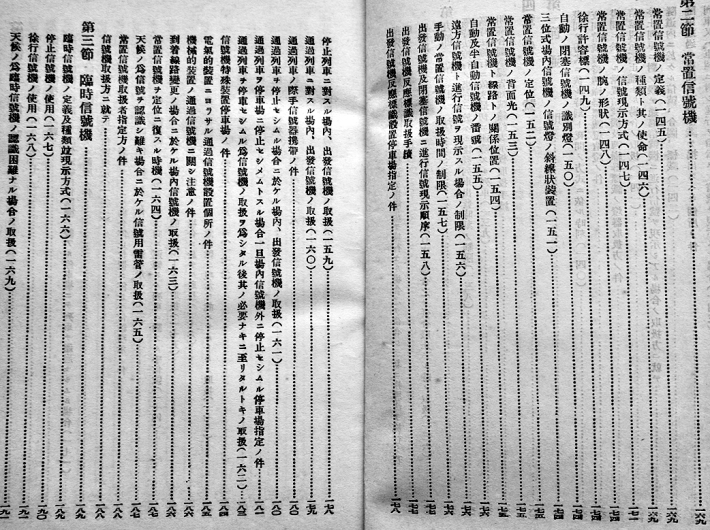 第二節 常置信號機……六九
常置信號機ノ定義(一四五)……六九
常置信號機ノ種類ト其ノ使命(一四六)……六九
常置信號機ノ信號現示方式(一四七)……七一
常置信號機ノ腕ノ形狀(一四八)
徐行許容標(一四九)
自動ノ閉塞信號機ノ識別燈(一五〇)
三位式場內信號機ノ信號燈ノ斜線狀裝置(一五一)
常置信號機ノ定位(一五二)
常置信號機ノ背面光(一五三)
常置信號機ト線路トノ關係位置(一五四)
自動及半自動信號機ノ番號(一五五)
遠方信號機ト進行信號ヲ現示スル場合ノ制限(一五六)
手動ノ常置信號機ノ取扱時間ノ制限(一五七)
出發信號機及閉塞信號機ニ進行信號現示順序(一五八)
出發信號機反應標識取扱手續
出發信號機反應標識設置停車場指定ノ件
停止列車ニ對スル場內、出發信號機ノ取扱(一五九)
通過列車ニ對スル場內、出發信號機ノ取扱(一六〇)
通過列車ノ際手信號器携帶ノ件
通過列車ヲ停止セシムル場合ニ於ケル場內、出發信號機ノ取扱(一六一)
通過列車ヲ停車場ニ停止セシメムトスル場合一旦場內信號機外ニ停止セシムル停車場指定ノ件
通過列車ヲ停車セシムル爲信號機ノ取扱ヲ爲シタル後其ノ必要ナキニ至リタルトキノ取扱(一六二)
信號機特殊裝置停車場ノ件
電氣的裝置ニヨラサル通過信號機設置個所ノ件
機械的裝置ノ通過信號機ニ關シ注意ノ件
到着線路變更ノ場合ニ於ケル場內信號機ノ取扱(一六三)
常置信號機ヲ定位ニ復スル時機(一六四)
天候ノ爲信號ヲ認識シ難キ場合ニ於ケル信號用雷管ノ取扱(一六五)
常置信號機取扱者指定方ノ件
信號機取扱方ニ就テ
第三節 臨時信號機
臨時信號機ノ定義及種類竝現示方式(一六六)
停止信號機ノ使用(一六七)
徐行信號機ノ使用(一六八)
天候ノ爲臨時信號機ノ認識困難ナル場合ノ取扱(一六九)